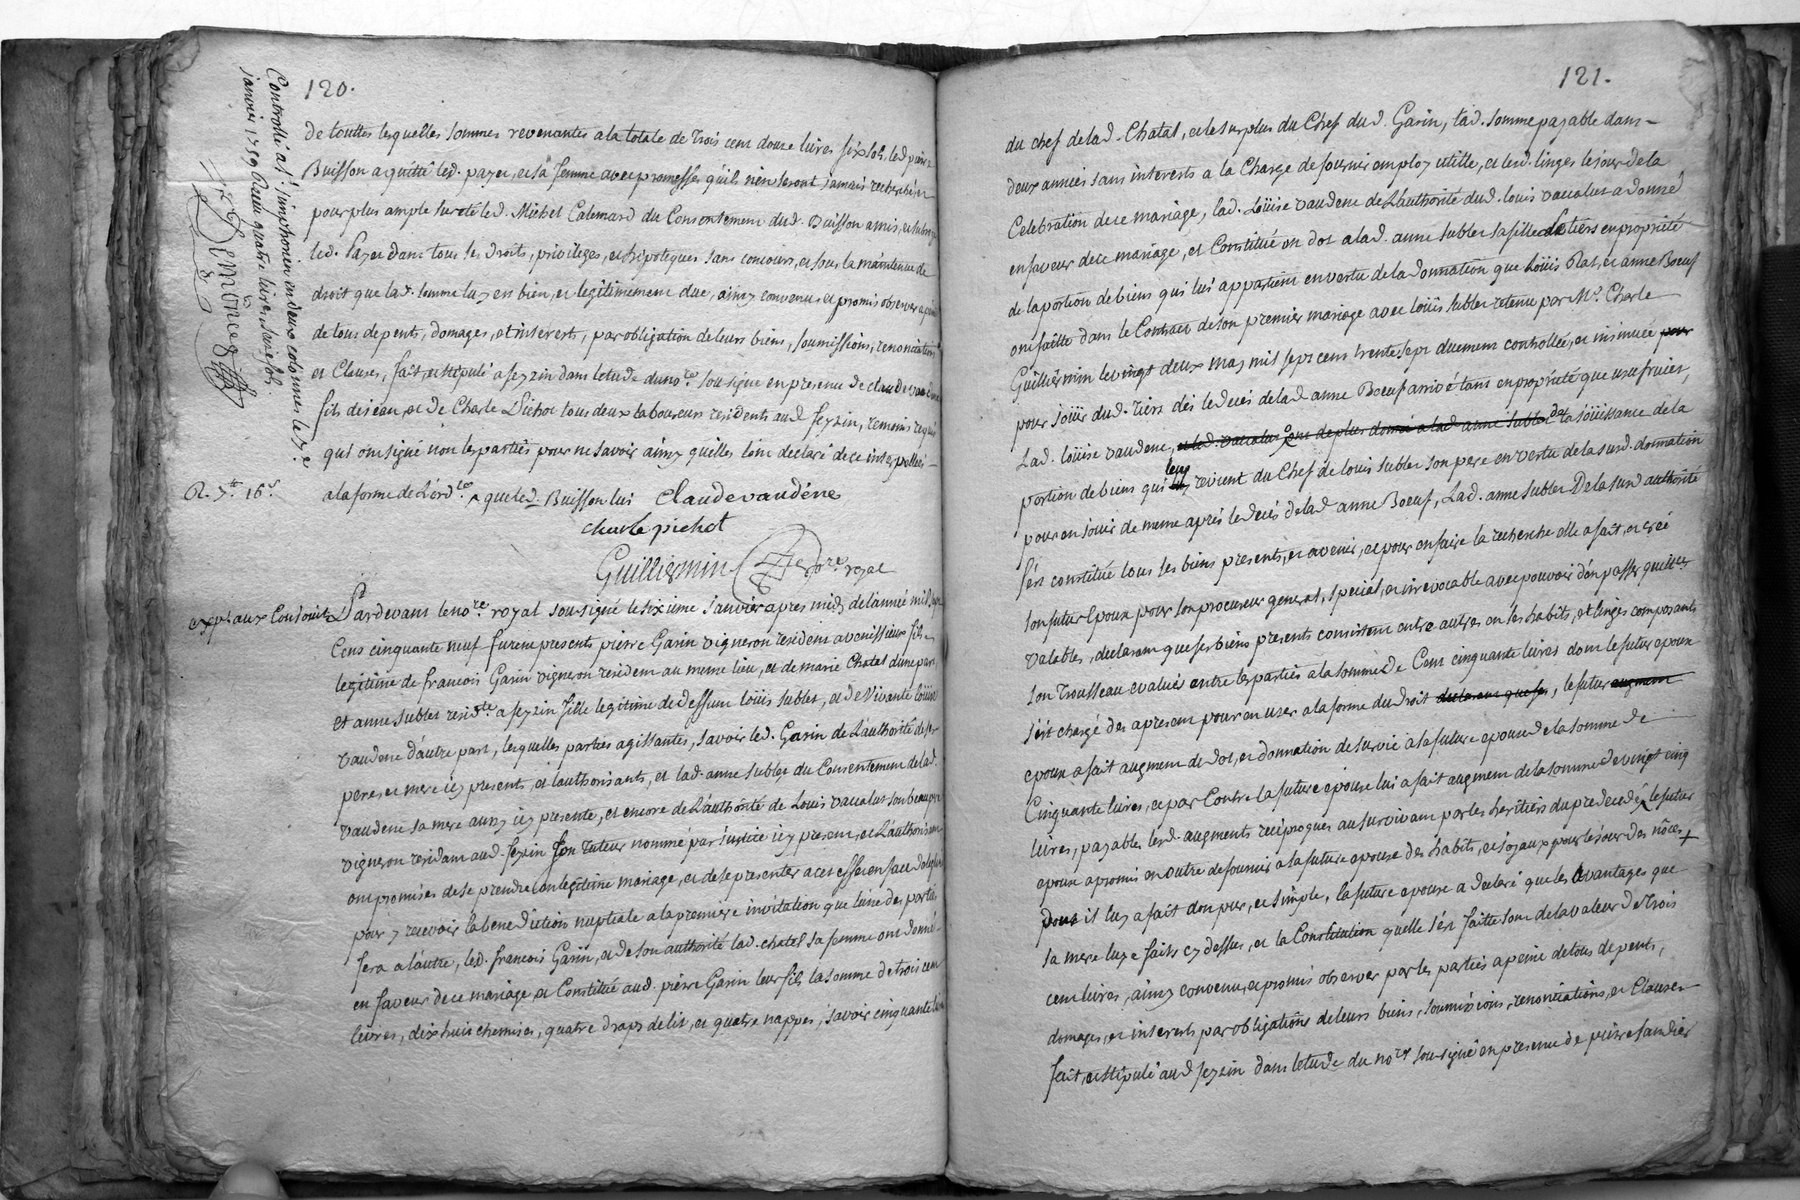 120.
Controllé a St. simphorien en deux cotonnes le 7e.
janvier 1759 Reçu quatre livres seize sols
de touttes lesquelles sommes revenantes a la totale de trois cent douze livres six sols, led. pierre
Buisson a quitté led. payer, et sa femme avec promesses qu'ils n'en seront jamais recherchés, et
pour plus ample sureté led. Michel Calemard du Consentement dud. Buisson a mis, et subrogé
led. payer dans tous ses droits, privileges, et hipoteques sans concours, et sous la maintenue de
droit que lad. somme luy en bien, et legitimement due, ainsy convenu, et promis observer a peine
de tous depents, domages, et interets, par obligation de leurs biens, soumissions, renonciations
et Clauses, fait, et stipulé a feyzin dans letude du nore. sousigné en presence de claude vaudene
fils de jean, et de Charle Pichot tous deux laboureurs residents aud. feyzin, temoins requis
qui ont signé non les parties pour ne savoir ainsy qu'elles l'ont declaré de ce interpellées
R. 7lt 16s
a la forme de L'ordce. que led. Buisson lui claudevaudéne
charle pichot
Guilliermin nore. royal
expt. aux Conjoints
Pardevant le nore. royal sousigné le sixieme janvier apres midy de l'année mil sept
Cens cinquante neuf furent presents pierre Garin vigneron resident a venissieux fils
legitime de francois Garin vigneron resident au meme lieu, et de marie Chatal d'une part,
et anne sublet residte. a feyzin fille legitime de deffunt loüis sublet, et de vivante loüise
vaudene d'autre part, lesquelles parties agissantes, savoir led. Garin de L'authorité de ses
pere, et mere icy presents, et l'authorisants, et lad. anne sublet du Consentement de lad.
vaudene sa mere aussy icy presente, et encore de L'authorité de Louis vacalut son beau pere
vigneron residant aud. feyzin son tuteur nommé par justice icy present, et L'authorisant
ont promis de se prendre en legitime mariage, et de se presenter a cet effet en face de l'eglise
pour y recevoir la benediction nuptiale a la premiere invitation que l'une des parties
fera a l'autre, led. francois Garin, et de son authorité lad. chatal sa femme ont donné
en faveur de ce mariage, et Constitué aud. pierre Garin leur fils la somme de trois cent
livres, dix huit chemises, quatre draps de lit, et quatre nappes, savoir cinquante livres
121.
du chef de lad. Chatal, et le surplus du Chef dud. Garin, lad. somme payable dans
deux années sans interets a la Charge de fournir employ utille, et lesd. linges le jour de la
Celebration de ce mariage, lad. Loüise vaudene de L'authorité dud. louis vacalut a donné
en faveur de ce mariage, et Constitué en dot a lad. anne sublet sa fille le tiers en propriété
de la portion de biens qui lui appartient en vertu de la donnation que Loüis Plat, et anne Boeuf
ont faitte dans le Contract de son premier mariage avec loüis sublet retenu par Me. Charle
Guilliermin le vingt deux may mil sept cens trente sept duement controllée, et insinuée pour
pour joüir dud. tiers dés le decés de lad. anne Boeuf arrivé tant en propriété que usufruict,
Lad. loüise vaudene, et led. vacalut ont de plus donné a lad. anne sublet de la joüissance de la
portion de biens qui leur revient du Chef de louis sublet son pere en vertu de la susd. donnation
pour en jouir de meme aprés le decés de lad. anne Boeuf, Lad. anne sublet De la susd. authorité
s'est constitué tous ses biens presents, et avenir, et pour en faire la recherche elle a fait, et creé
son futur Epoux pour son procureur general, special, et irrevocable avec pouvoir d'en passer quittces.
valables, declarant que ses biens presents consistent entre autres en ses habits, et linges composants
son Trousseau evalués entre les parties a la somme de Cent cinquante livres dont le futur epoux
s'est chargé des apresent pour en user a la forme du droit declarant que ses, le futur augment
epoux a fait augment de dot, et donnation de survie a la future epouse de la somme de
Cinquante livres, et par Contre la future epouse lui a fait augment de la somme de vingt cinq
livres, payables lesd. augments reciproques au survivant par les heritiers du predecedé, le futur
epoux a promis en outre de fournir a la future epouse des habits, et joyaux pour le jour des nôces +
dont il luy a fait don pur, et simple, la future epouse a declaré que les avantages que
sa mere luy a faits cy dessus, et la Constitution quelle s'est faitte sont de la valeur de Trois
cent livres, ainsy convenu, et promis observer par les parties a peine de tous depents,
domages, et interets par obligations de leurs biens, soumissions, renonciations, et Clauses
fait, et stipulé aud. feyzin dans letude du nore. sousigné en presence de pierre sandier